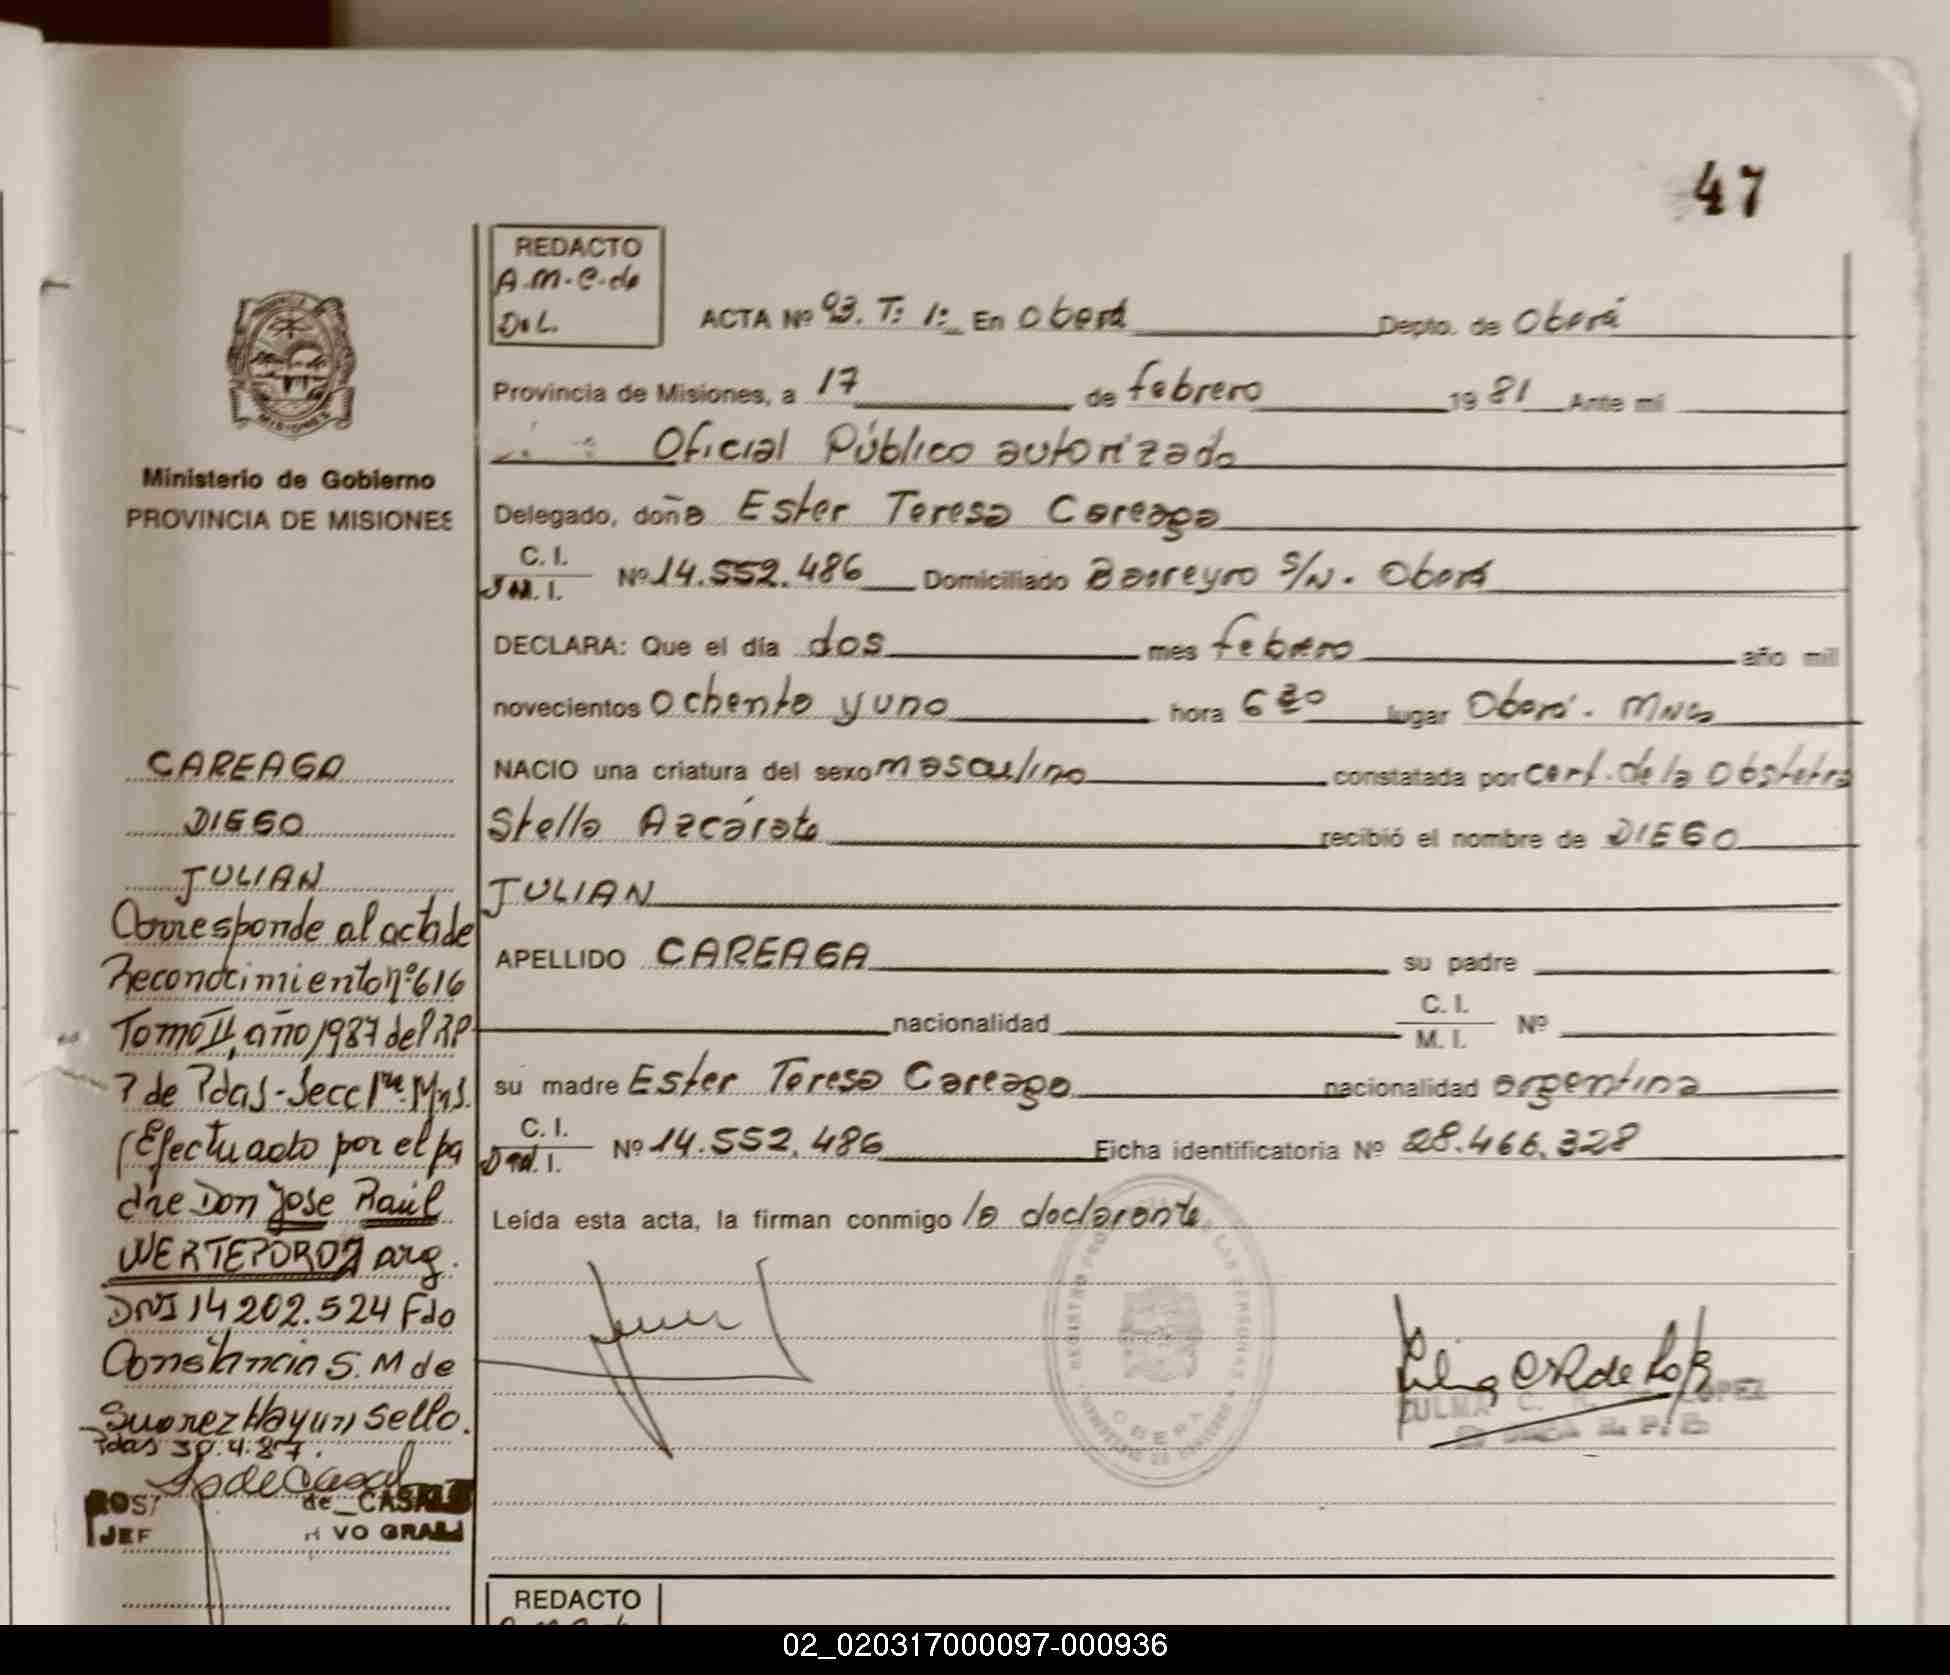 47
REDACTO
A.M.C. de
D.L.
ACTA Nº 93. T: 1: En Oberá Depto. de Oberá
Provincia de Misiones, a 17 de febrero 1981 Ante mi
Oficial Público autorizado
Delegado, doña Ester Teresa Careaga
C. I.
M. I. Nº 14.552.486 Domiciliado Barreyro S/N. Oberá
DECLARA: Que el día dos mes febrero año mil
novecientos ochenta y uno hora 6 30 lugar Oberá. Mnes
NACIO una criatura del sexo masculino constatada por cert. de la Obstetra
Stella Azcárate recibió el nombre de DIEGO
JULIAN
APELLIDO CAREAGA su padre
nacionalidad C. I.
M. I. Nº
su madre Ester Teresa Careaga nacionalidad argentina
C. I.
M. I. Nº 14.552.486 Ficha identificatoria Nº 28.466.328
Leída esta acta, la firman conmigo la declarante
ZULMA C. LOPEZ
OBERA
MISIONES
Ministerio de Gobierno
PROVINCIA DE MISIONES
CAREAGA
DIEGO
JULIAN
Corresponde al acta de
Reconocimiento nº 616
Tomo II, año 1987 del RP
P de Pdas - Secc 1ra. Mns.
(Efectuado por el pa
dre Don Jose Raúl
WERTEPOROJ arg.
DNI 14202.524 Fdo
Constancia S. M de
Suarez Hayun sello.
Pdas 30.4.87.
de CASAL
JEF
REDACTO
02_020317000097-000936